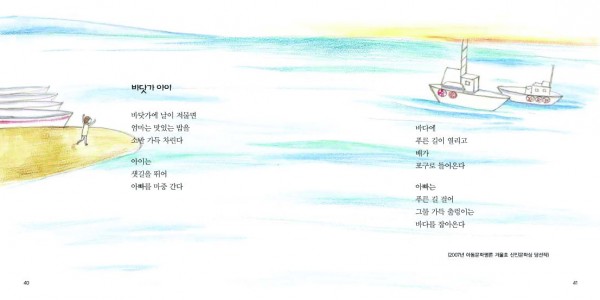 바닷가 아이
바닷가에 날이 저물면
엄마는 맛있는 밥을
소반 가득 차린다
아이는
샛길을 뛰어
아빠를 마중 간다
바다에
푸른 길이 열리고
배가
포구로 들어온다
아빠는
푸른 길 걸어
그물 가득 출렁이는
바다를 잡아온다
(2007년 아동문학평론 겨울호 신인문학상 당선작)
40
41